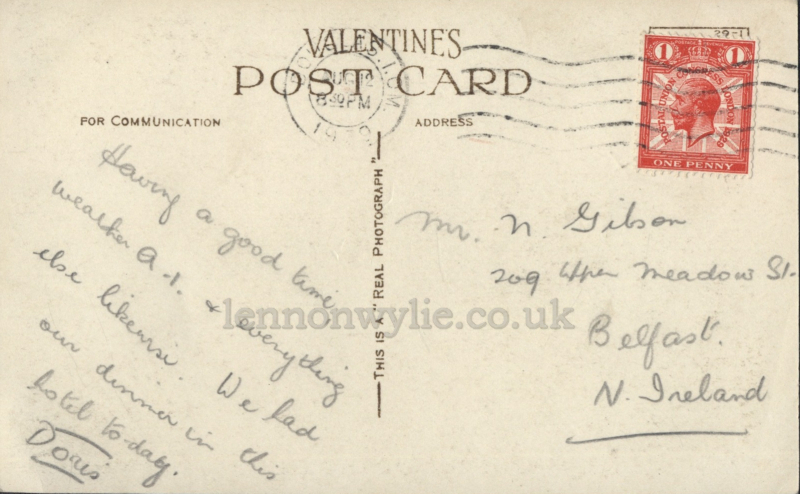 VALENTINE'S
POST CARD
FOR COMMUNICATION
ADDRESS
AUG 12
8 30 PM
I.O.M.
THIS IS A "REAL PHOTOGRAPH"
1 1
POSTAL UNION CONGRESS LONDON 1929
ONE PENNY
Having a good time,
weather A-1. & everything
else likewise. We had
our dinner in this
hotel to-day.
Doris
Mr. N. Gibson
209 Upper Meadow St.
Belfast.
N. Ireland
lennonwylie.co.uk